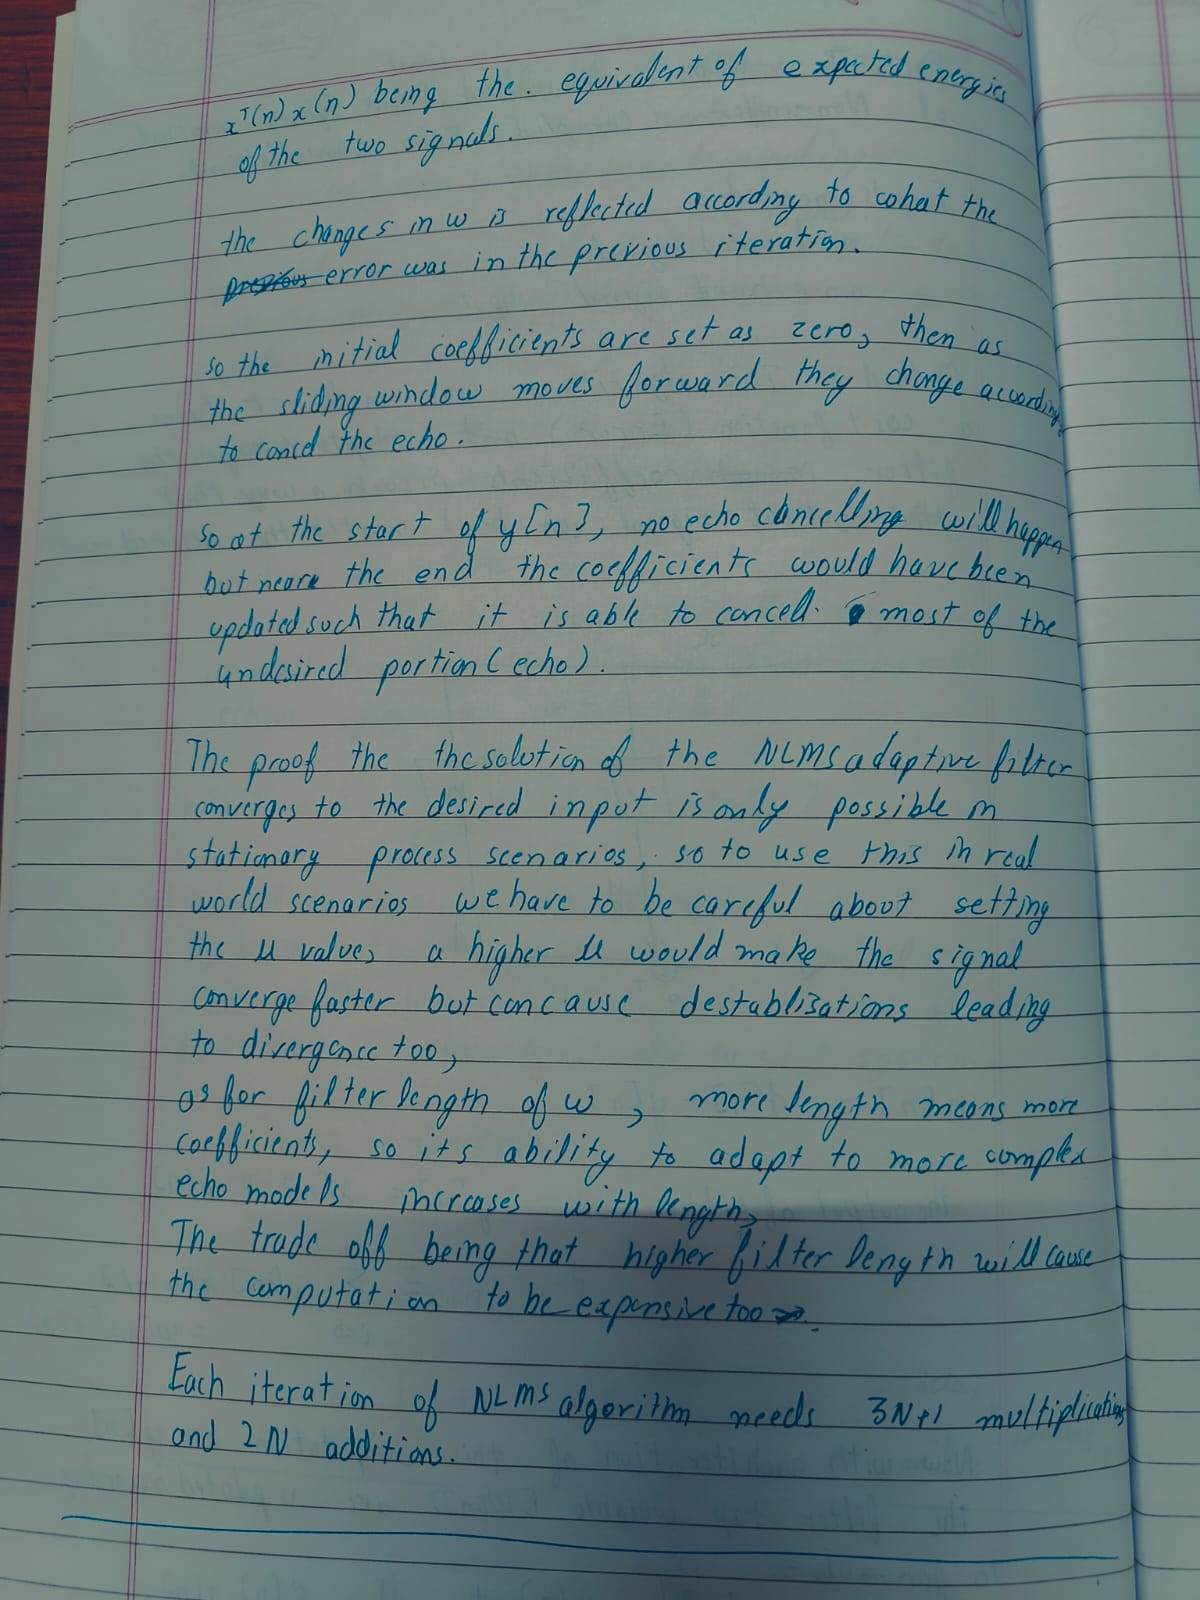 xᵀ(n) x(n) being the. equivalent of expected energies
of the two signals.
the changes in w is reflected according to what the
previous error was in the previous iteration.
so the initial coefficients are set as zero, then as
the sliding window moves forward they change according
to cancel the echo.
so at the start of y[n], no echo cancelling will happen
but near the end the coefficients would have been
updated such that it is able to cancell. most of the
undesired portion (echo).
The proof the the solution of the NLMS adaptive filter
converges to the desired input is only possible in
stationary process scenarios, so to use this in real
world scenarios we have to be careful about setting
the μ value, a higher μ would make the signal
converge faster but can cause destablisations leading
to divergence too,
as for filter length of w, more length means more
coefficients, so its ability to adapt to more complex
echo models increases with length,
The trade off being that higher filter length will cause
the computation to be expensive too.
Each iteration of NLMS algorithm needs 3N+1 multiplications
and 2N additions.